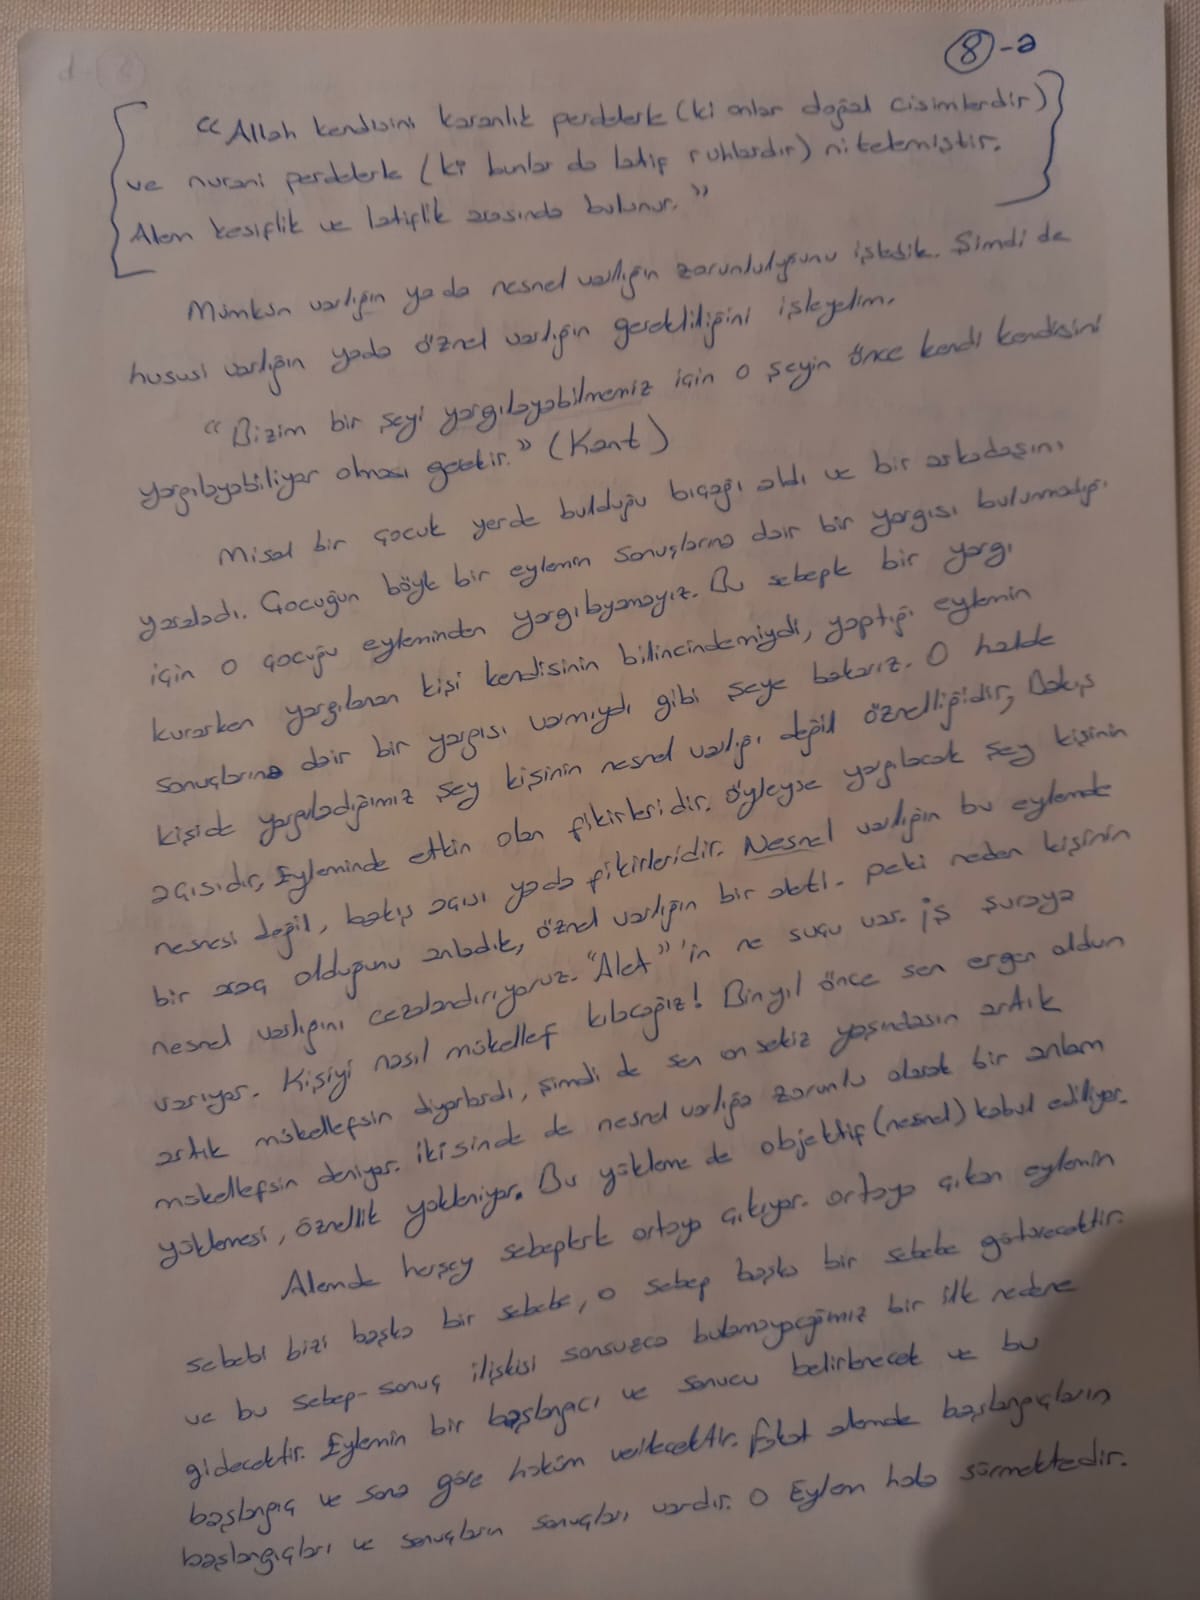 8-a
"Allah kendisini karanlık perdelerle (ki onlar doğal cisimlerdir)
ve nurani perdelerle (ki bunlar da latif ruhlardır) nitelemiştir.
Alem kesiflik ve latiflik arasında bulunur."
Mümkün varlığın yada nesnel varlığın zorunluluğunu işledik. Şimdi de
hususi varlığın yada öznel varlığın gerekliliğini işleyelim.
"Bizim bir şeyi yargılayabilmemiz için o şeyin önce kendi kendisini
yargılayabiliyor olması gerekir." (Kant)
Misal bir çocuk yerde bulduğu bıçağı aldı ve bir arkadaşını
yaraladı. Çocuğun böyle bir eylemin sonuçlarına dair bir yargısı bulunmadığı
için o çocuğu eyleminden yargılayamayız. Bu sebeple bir yargı
kurarken yargılanan kişi kendisinin bilincindemiydi, yaptığı eylemin
sonuçlarına dair bir yargısı varmıydı gibi şeye bakarız. O halde
kişide yargıladığımız şey kişinin nesnel varlığı değil öznelliğidir, Bakış
açısıdır, Eyleminde etkin olan fikirleridir. Öyleyse yargılacak şey kişinin
nesnesi değil, bakış açısı yada fikirleridir. Nesnel varlığın bu eylemde
bir araç olduğunu anladık, öznel varlığın bir aleti. peki neden kişinin
nesnel varlığını cezalandırıyoruz. "Alet"'in ne suçu var. iş şuraya
varıyor. Kişiyi nasıl mükellef kılacağız! Bin yıl önce sen ergen oldun
artık mükellefsin diyorlardı, şimdi de sen on sekiz yaşındasın artık
mükellefsin deniyor. ikisinde de nesnel varlığa zorunlu olarak bir anlam
yüklemesi, öznellik yükleniyor. Bu yükleme de objektif (nesnel) kabul ediliyor.
Alemde herşey sebeplerle ortaya çıkıyor. ortaya çıkan eylemin
sebebi bizi başka bir sebebe, o sebep başka bir sebebe götürecektir.
ve bu sebep-sonuç ilişkisi sonsuzca bulamayacağımız bir ilk nedene
gidecektir. Eylemin bir başlangıcı ve sonucu belirlenecek ve bu
başlangıç ve sona göre hüküm verilecektir. fakat alemde başlangıçların
başlangıçları ve sonuçların sonuçları vardır. O Eylem hala sürmektedir.